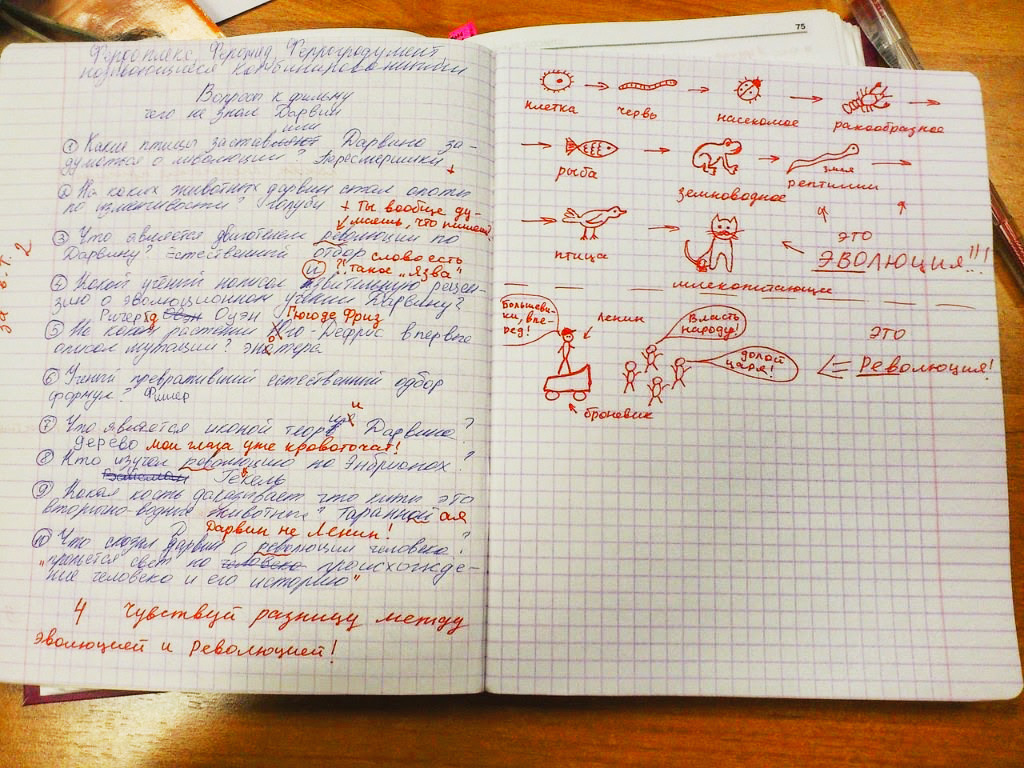 75
Вопросы к фильму
чего не знал Дарвин
или
① Какие птицы заставляют Дарвина за-
думатся о револющии? Пересмешники
+
② На каких животных дарвин стал
по изменчивости? голуби
+ Ты вообще ду-
маешь, что пишешь
③ Что является двигателем революции по
Дарвину? Естественный отбор
слово есть
такое "язва"
и
④ Какой учёний написал язвительную рецен-
зию о эволюционном учении Дарвину?
Ричерд Оуэн
Гюго де Фриз
⑤ На каком растении Юго-Дефриc впервые
описал мутации? энотера
⑥ Учений превративший естественный одбор
формул? Фишер
и
⑦ Что является иконой теори Дарвина?
дерево мои глаза уже кровоточат!
⑧ Кто изучал революцию по Энбрионах?
Гекель
⑨ Какая кость доказывает что киты это
вторично-водные животные? Таранной ая
Дарвин не Ленин!
⑩ Что сказал дарвин о революции человека?
"прольётся свет на человека происхожде-
ние человека и его историю"
4 Чувствуй разницу между
Эволюцией и Революцией!
2
клетка
червь
насекомое
ракообразное
рыба
земноводное
змея
рептилии
птица
млекопитающие
ЭТО
ЭВОЛЮЦИЯ!!!
Большеви-
ки, впе-
ред!
Ленин
Власть
народу!
долой
царя!
броневик
ЭТО
Революция!